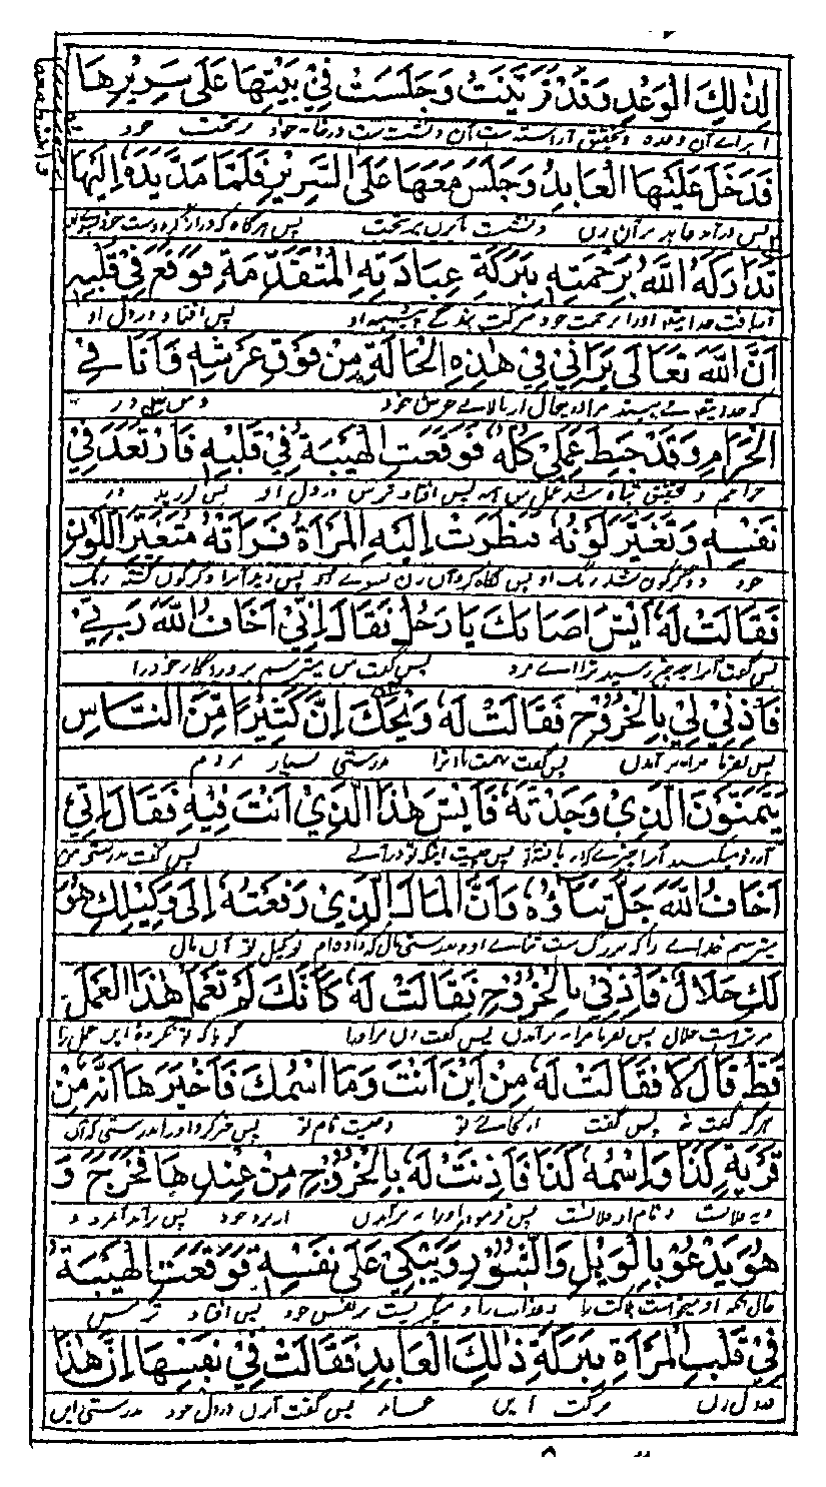 لِذٰلِكَ الْوَعْدِ وَقَدْ تَزَيَّنَتْ وَجَلَسَتْ فِيْ بَيْتِهَا عَلٰى سَرِيْرِهَا
براے آن وعده وتحقیق آراسته ست آن ونشست ست درخانه خود بر تخت خود
فَدَخَلَ عَلَيْهَا الْعَابِدُ وَجَلَسَ مَعَهَا عَلَى السَّرِيْرِ فَلَمَّا مَدَّ يَدَهٗ اِلَيْهَا
پس درآمد عابد بر آن زن ونشست بر تخت پس هرگاه که دراز کرد دست خود
تَدَارَكَهُ اللّٰهُ بِرَحْمَتِهٖ بِبَرَكَةِ عِبَادَتِهِ الْمُتَقَدِّمَةِ فَوَقَعَ فِيْ قَلْبِهٖ
اورا برحمت خود ببرکت بندگی پس افتاد در دل او
اَنَّ اللّٰهَ تَعَالٰى يَرَانِيْ فِيْ هٰذِهِ الْحَالَةِ مِنْ فَوْقِ عَرْشِهٖ وَاَنَا فِي
که می بیند مرا از بالاے عرش خود و من در
الْحَرَامِ وَقَدْ حَبِطَ عَمَلِيْ كُلُّهٗ فَوَقَعَتِ الْهَيْبَةُ فِيْ قَلْبِهٖ فَارْتَعَدَ فِيْ
حرام و تحقیق تباه شد عمل من پس افتاد ترس در دل او پس لرزید در
نَفْسِهٖ وَتَغَيَّرَ لَوْنُهٗ فَنَظَرَتْ اِلَيْهِ الْمَرْاَةُ فَرَاَتْهُ مُتَغَيِّرَ اللَّوْنِ
خود و دگرگون شد رنگ او پس نگاه کرد آن زن بسوے او پس دید او را دگرگون گشته رنگ
فَقَالَتْ لَهٗ اَيْشٍ اَصَابَكَ يَا رَجُلُ فَقَالَ اِنِّيْ اَخَافُ اللّٰهَ رَبِّيْ
پس گفت او را چه چیز رسید ترا اے مرد پس گفت من میترسم پروردگار خود را
فَأْذَنِيْ لِيْ بِالْخُرُوْجِ فَقَالَتْ لَهٗ وَيْحَكَ اِنَّ كَثِيْرًا مِّنَ النَّاسِ
پس بفرما مرا بر آمدن پس گفت ترا بدرستی بسیار مردم
يَتَمَنَّوْنَ الَّذِيْ وَجَدْتَهٗ فَاَيْشٍ هٰذَا الَّذِيْ اَنْتَ فِيْهِ فَقَالَ اِنِّيْ
آرزو میکنند پس چیست اینکه تو درآنے پس گفت بدرستی من
اَخَافُ اللّٰهَ جَلَّ ثَنَاؤُهٗ وَاَنَّ الْمَالَ الَّذِيْ دَفَعْتُهٗ اِلٰى وَكِيْلِكِ هُوَ
میترسم خداے را که بزرگ ست ثناے او و بدرستی مال که داده ام بوکیل تو آن مال
لَكِ حَلَالٌ فَأْذَنِيْ بِالْخُرُوْجِ فَقَالَتْ لَهٗ كَاَنَّكَ لَمْ تَعْمَلْ هٰذَا الْعَمَلَ
مر ترا ست حلال پس بفرما مرا بر آمدن پس گفت آن زن او را گویا که تو نکرده این عمل را
قَطُّ قَالَ لَا فَقَالَتْ لَهٗ مِنْ اَيْنَ اَنْتَ وَمَا اسْمُكَ فَاَخْبَرَهَا اَنَّهٗ مِنْ
هرگز گفت نه پس گفت از کجائے تو و چیست نام تو پس خبر کرد او را بدرستی که آن
قَرْيَةِ كَذَا وَاسْمُهٗ كَذَا فَاَذِنَتْ لَهٗ بِالْخُرُوْجِ مِنْ عِنْدِهَا فَخَرَجَ وَ
و نام او فلانست پس فرمود او را بر آمدن از نزد خود پس برآمد آن مرد و
هُوَ يَدْعُوْ بِالْوَيْلِ وَالثُّبُوْرِ وَيَبْكِيْ عَلٰى نَفْسِهٖ فَوَقَعَتِ الْهَيْبَةُ
حال آنکه او میخواست هلاکت را و عذاب را و میگریست بر نفس خود پس افتاد ترس
فِيْ قَلْبِ الْمَرْاَةِ بِبَرَكَةِ ذٰلِكَ الْعَابِدِ فَقَالَتْ فِيْ نَفْسِهَا اِنَّ هٰذَا
در دل زن ببرکت این عابد پس گفت آن زن در دل خود بدرستی این